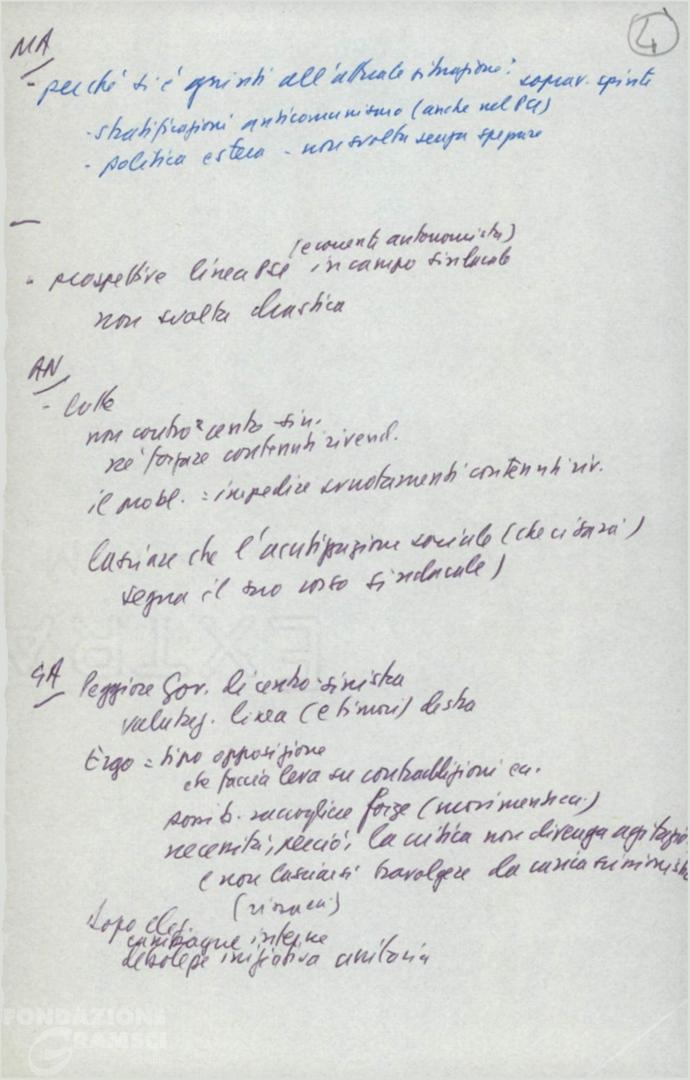 4
MA
- perché si è giunti all'attuale situazione? soprav. spinte
- stratificazioni anticomunismo (anche nel PCI)
- politica estera - non svolta senza
—
(e correnti autonomista)
- prospettive linea PSI in campo sindacale
non svolta drastica
AN
- lotte
non contro centro sin.
né forzare contenuti rivend.
il probl. = impedire svuotamenti contenuti riv.
lasciare che l'acutizzazione sociale (che ci sarà)
segua il suo corso sindacale)
GA
Peggiore Gov. di centro-sinistra
linea (e timori) destra
Ergo = tipo opposizione
che faccia leva su contraddizioni
raccogliere forze
necessità, perciò, la critica non divenga
e non lasciarsi travolgere da
dopo elez.
campagne interne
debole iniziativa unitaria
FONDAZIONE
GRAMSCI